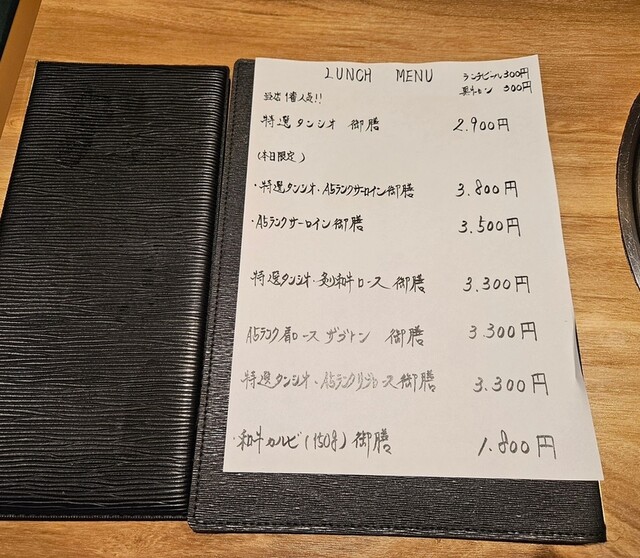 LUNCH MENU
ランチビール300円
300円
当店1番人気!!
特選タンシオ 御膳 2.900円
(本日限定)
・特選タンシオ・A5ランクサーロイン御膳 3.800円
・A5ランクサーロイン御膳 3.500円
特選タンシオ・和牛ロース 御膳 3.300円
A5ランク肩ロース ザブトン 御膳 3.300円
特選タンシオ・A5ランクリブロース御膳 3.300円
・和牛カルビ(150g)御膳 1.800円